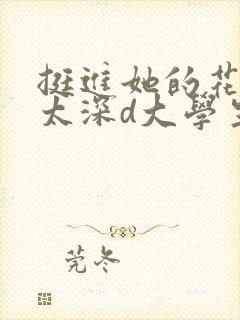 挺進她的花
太深d大學生
莞冬